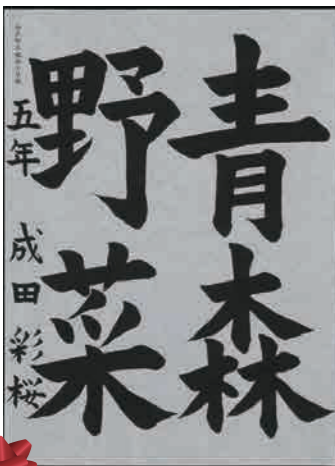 青森
野菜
五年 成田彩桜